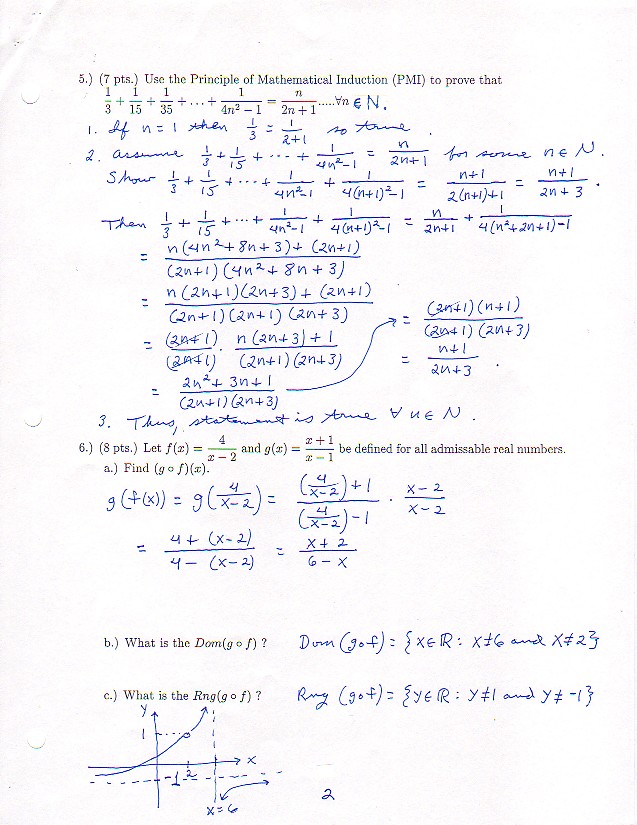 5.) (7 pts.) Use the Principle of Mathematical Induction (PMI) to prove that
1/3 + 1/15 + 1/35 + ... + 1/(4n² − 1) = n/(2n + 1) .....∀n ∈ N.
1. If n = 1 then 1/3 = 1/(2+1) so true.
2. assume 1/3 + 1/15 + ... + 1/(4n²−1) = n/(2n+1) for some n ∈ N.
Show 1/3 + 1/15 + ... + 1/(4n²−1) + 1/(4(n+1)²−1) = (n+1)/(2(n+1)+1) = (n+1)/(2n+3).
Then 1/3 + 1/15 + ... + 1/(4n²−1) + 1/(4(n+1)²−1) = n/(2n+1) + 1/(4(n²+2n+1)−1)
= (n(4n²+8n+3) + (2n+1))/((2n+1)(4n²+8n+3))
= (n(2n+1)(2n+3) + (2n+1))/((2n+1)(2n+1)(2n+3))
= (2n+1)/(2n+1) · (n(2n+3)+1)/((2n+1)(2n+3))
= (2n²+3n+1)/((2n+1)(2n+3))
= ((2n+1)(n+1))/((2n+1)(2n+3))
= (n+1)/(2n+3)
3. Thus, statement is true ∀ n ∈ N.
6.) (8 pts.) Let f(x) = 4/(x − 2) and g(x) = (x + 1)/(x − 1) be defined for all admissable real numbers.
a.) Find (g ∘ f)(x).
g(f(x)) = g(4/(x−2)) = ((4/(x−2)) + 1)/((4/(x−2)) − 1) · (x−2)/(x−2)
= (4 + (x−2))/(4 − (x−2)) = (x+2)/(6−x)
b.) What is the Dom(g ∘ f) ? Dom (g∘f) = {x∈R : x≠6 and x≠2}
c.) What is the Rng(g ∘ f) ? Rng (g∘f) = {y∈R : y≠1 and y≠−1}
y
1
x
−1
2
x=6
2